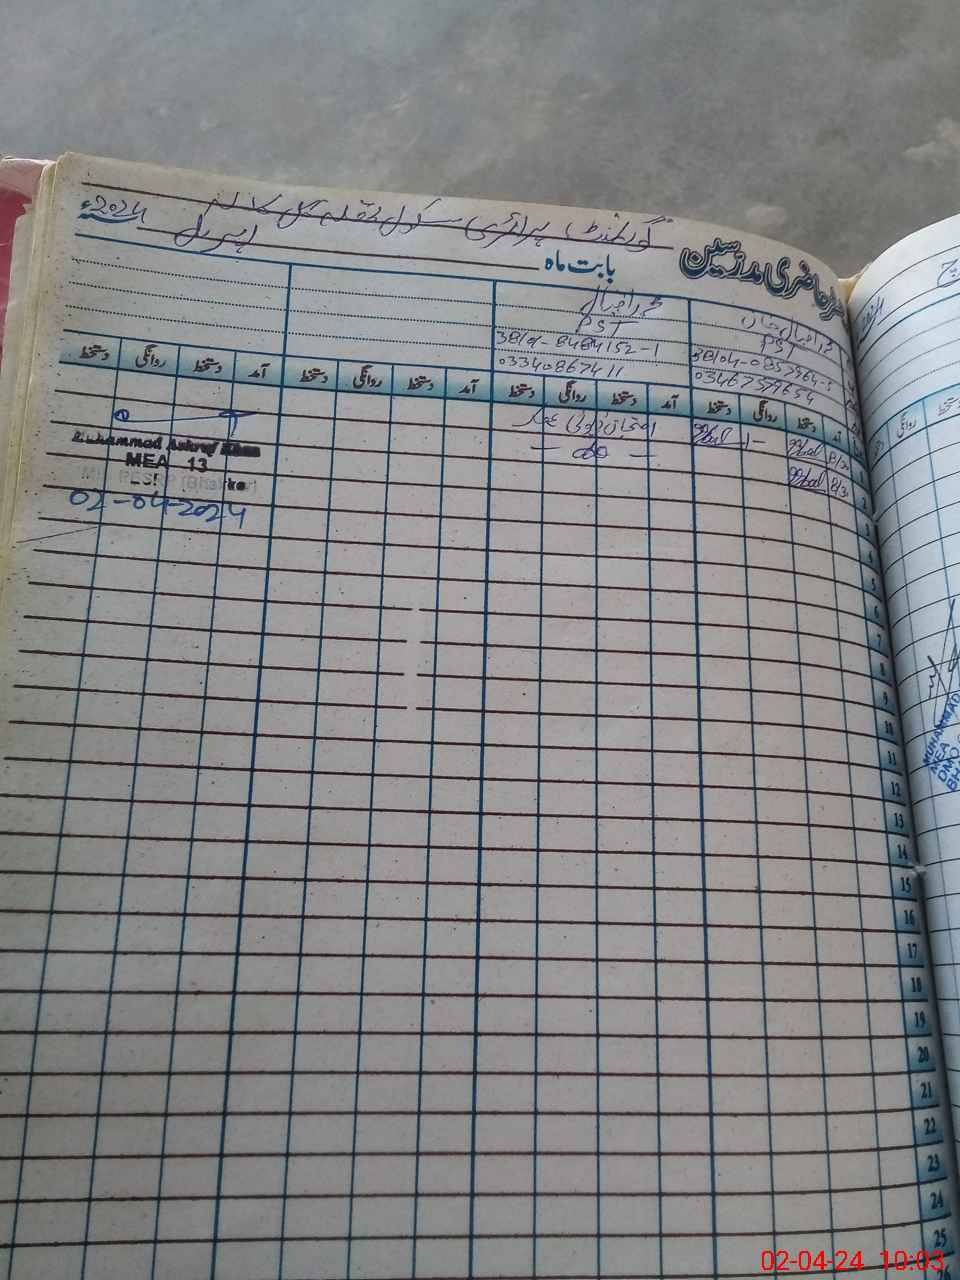 گورنمنٹ پرائمری سکول
رجسٹر حاضری مدرسین
بابت ماہ اپریل 2024ء
محمد اقبال خان
PST
38104-0357964-5
03467579654
محمد اقبال
PST
38101-8484152-1
03340867411
آمد دستخط روانگی دستخط آمد دستخط روانگی دستخط آمد دستخط روانگی دستخط آمد دستخط روانگی دستخط
1 8/30
امتحان ڈیوٹی
2 8/30
3
4
5
6
7
8
9
10
11
12
13
14
15
16
17
18
19
20
21
22
23
24
25
26
Muhammad Ashraf Khan
MEA 13
02-04-2024
روانگی
دستخط
MUHAMMAD
MEA
DMO
BHA
02-04-24 10:03